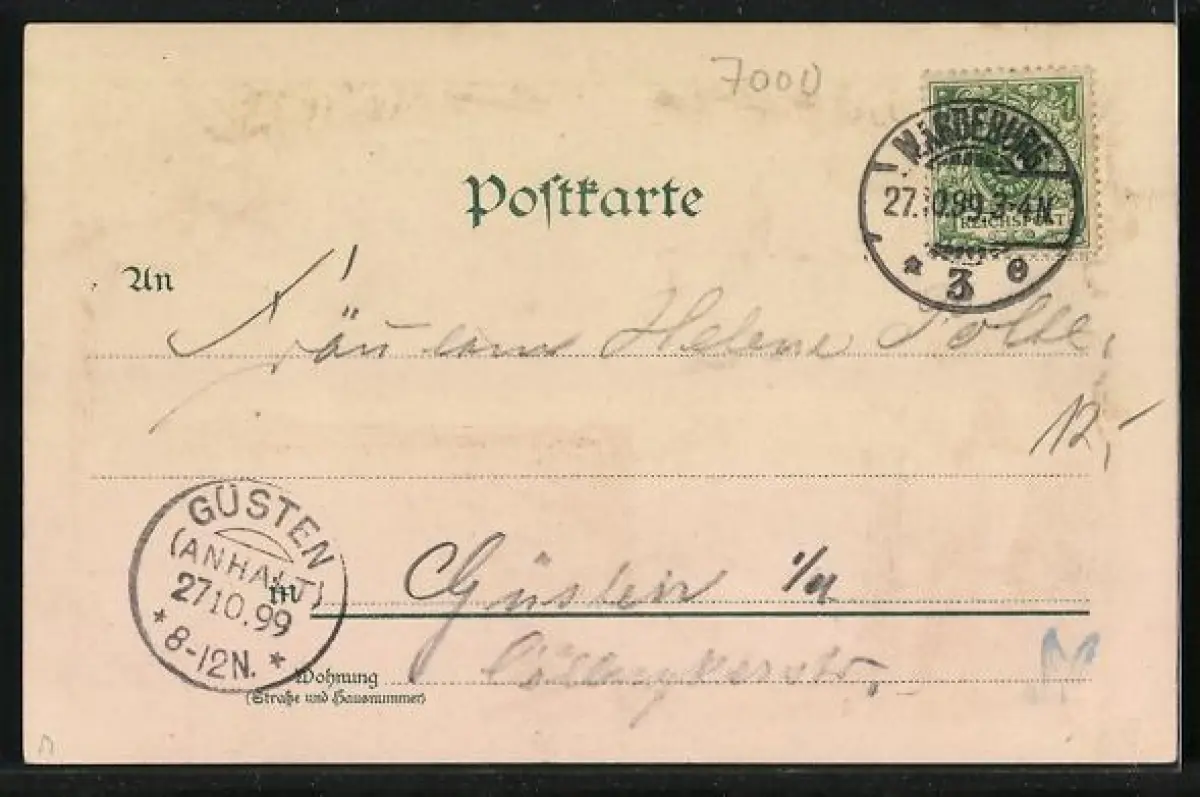 7000
MAGDEBURG
27.10.99.3-4N.
* 3 e
REICHSPOST
Postkarte
An
Fräulein Helene
12,-
GÜSTEN
(ANHALT)
27 10.99
* 8-12N. *
in Güsten i/A
Wohnung
(Straße und Hausnummer)